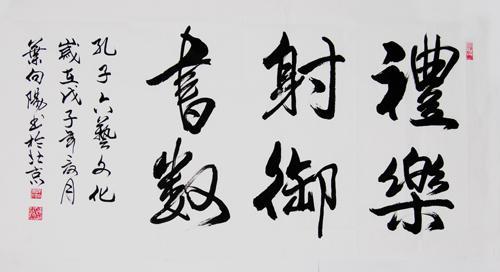 禮樂
射御
書数
孔子六藝文化
歲在戊子年
葉向陽書於北京